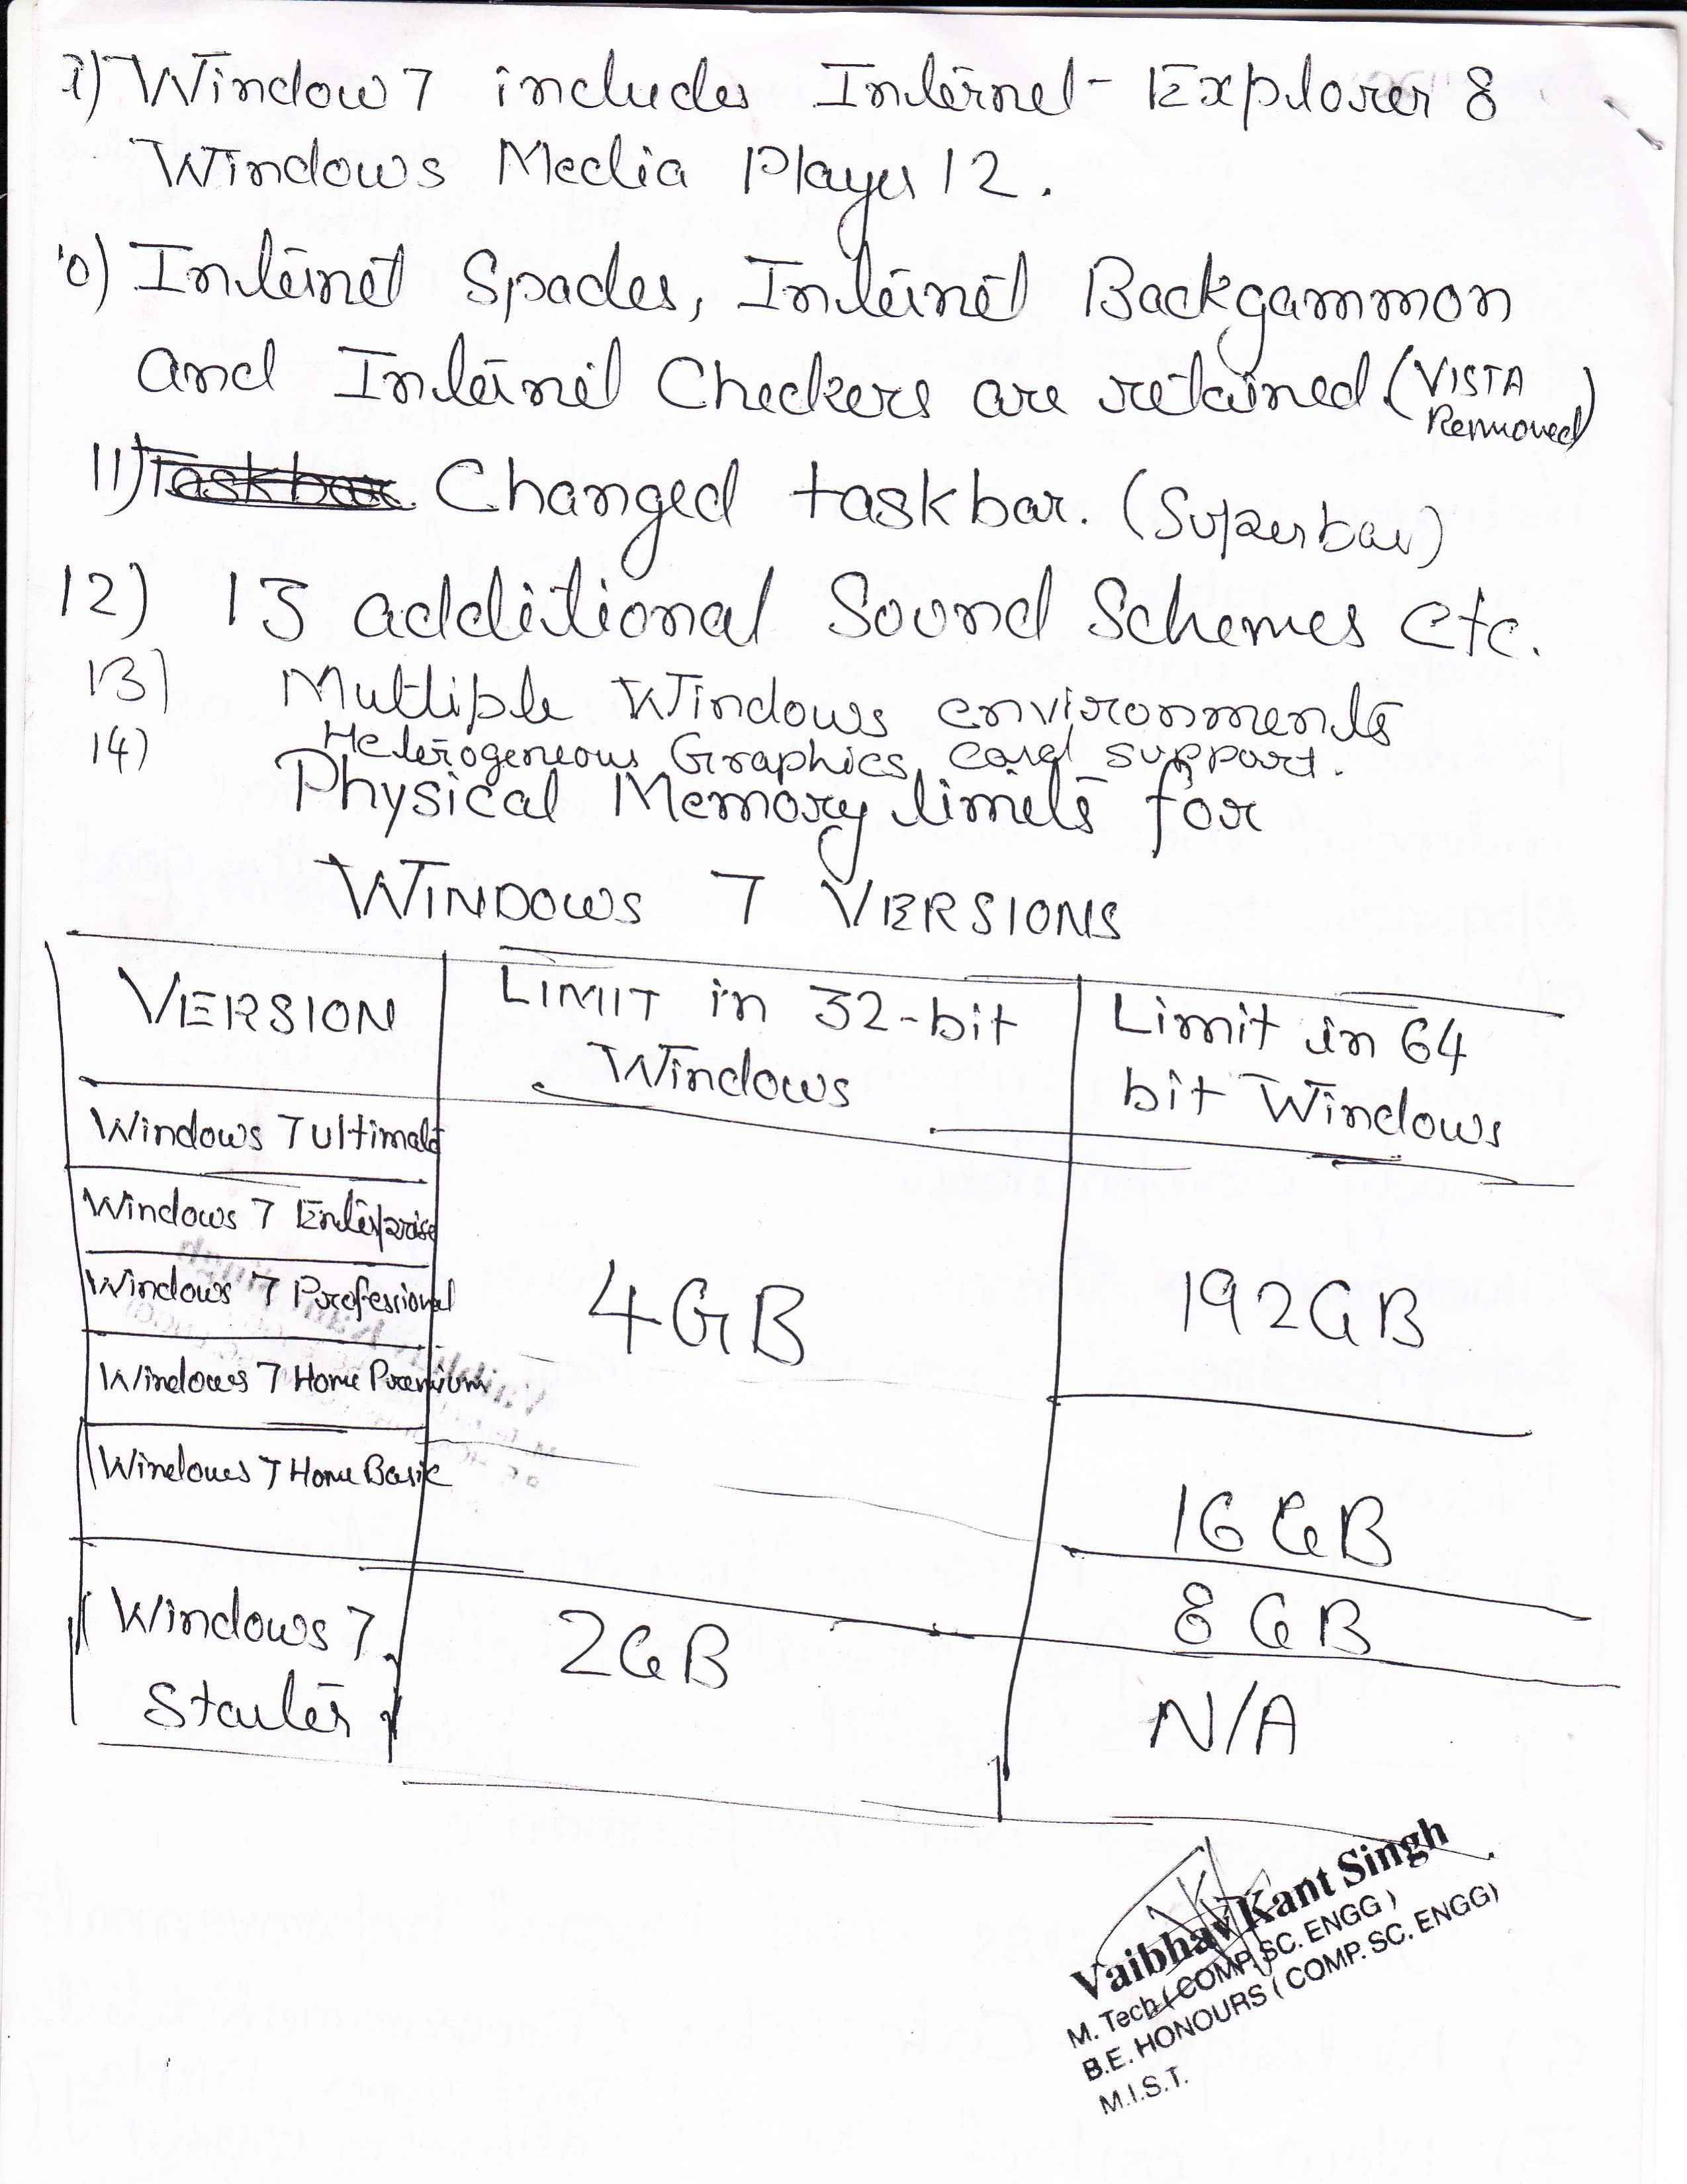 9) Window 7 includes Internet Explorer 8
Windows Media Player 12.
10) Internet Spades, Internet Backgammon
and Internet Checkers are retained (VISTA Removed)
11) Taskbar Changed taskbar. (Superbar)
12) 13 additional Sound Schemes etc.
13) Multiple Windows environments
14) Heterogeneous Graphics card support.
Physical Memory limits for
WINDOWS 7 VERSIONS
VERSION LIMIT in 32-bit Windows Limit in 64 bit Windows
Windows 7 Ultimate
Windows 7 Enterprise
Windows 7 Professional 4GB 192GB
Windows 7 Home Premium
Windows 7 Home Basic
16 GB
8 GB
Windows 7 Starter 2GB N/A
Vaibhav Kant Singh
M. Tech (COMP. SC. ENGG)
B.E. HONOURS (COMP. SC. ENGG)
M.I.S.T.